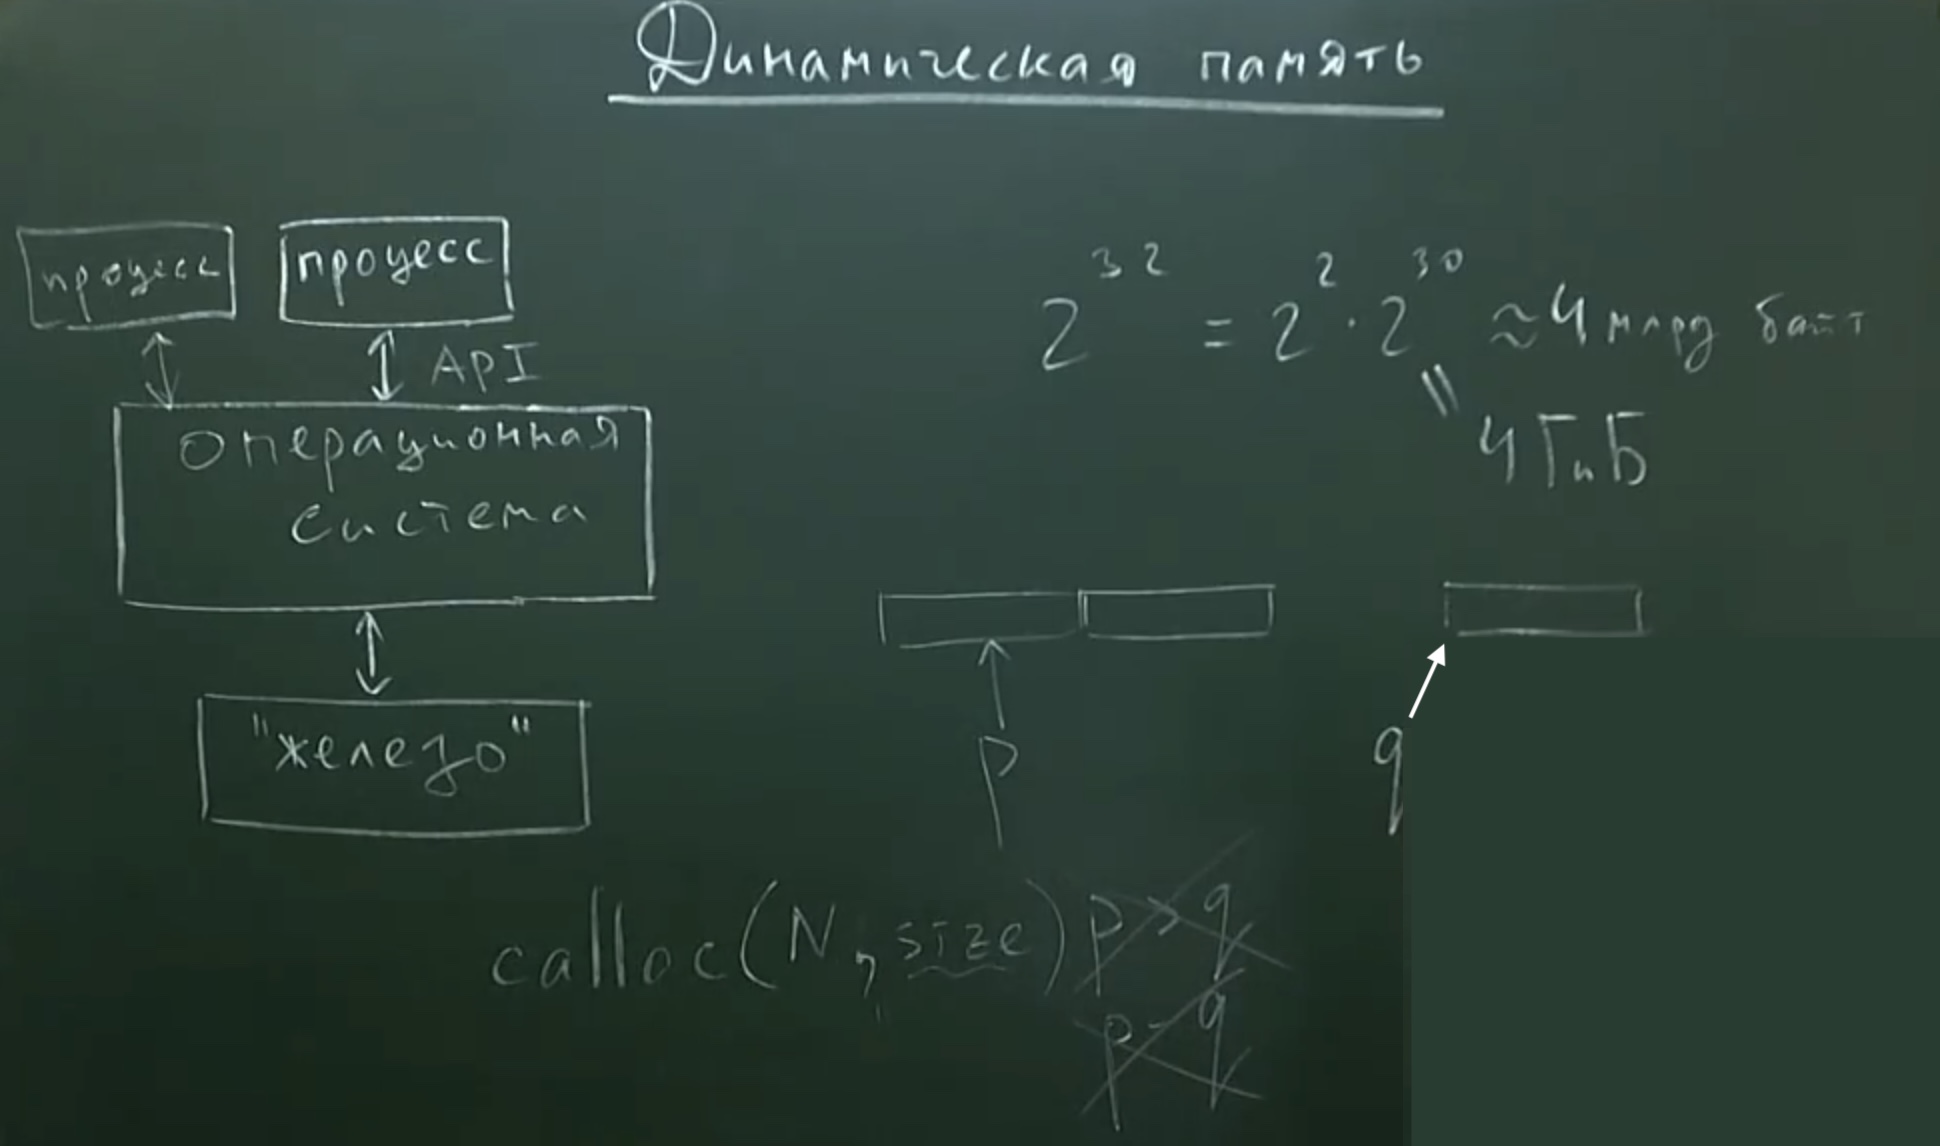 Динамическая память
процесс процесс
API
операционная
система
"железо"
2³² = 2² · 2³⁰ ≈ 4 млрд байт
=
4 ГиБ
p
q
calloc(N, size)
p > q
p - q